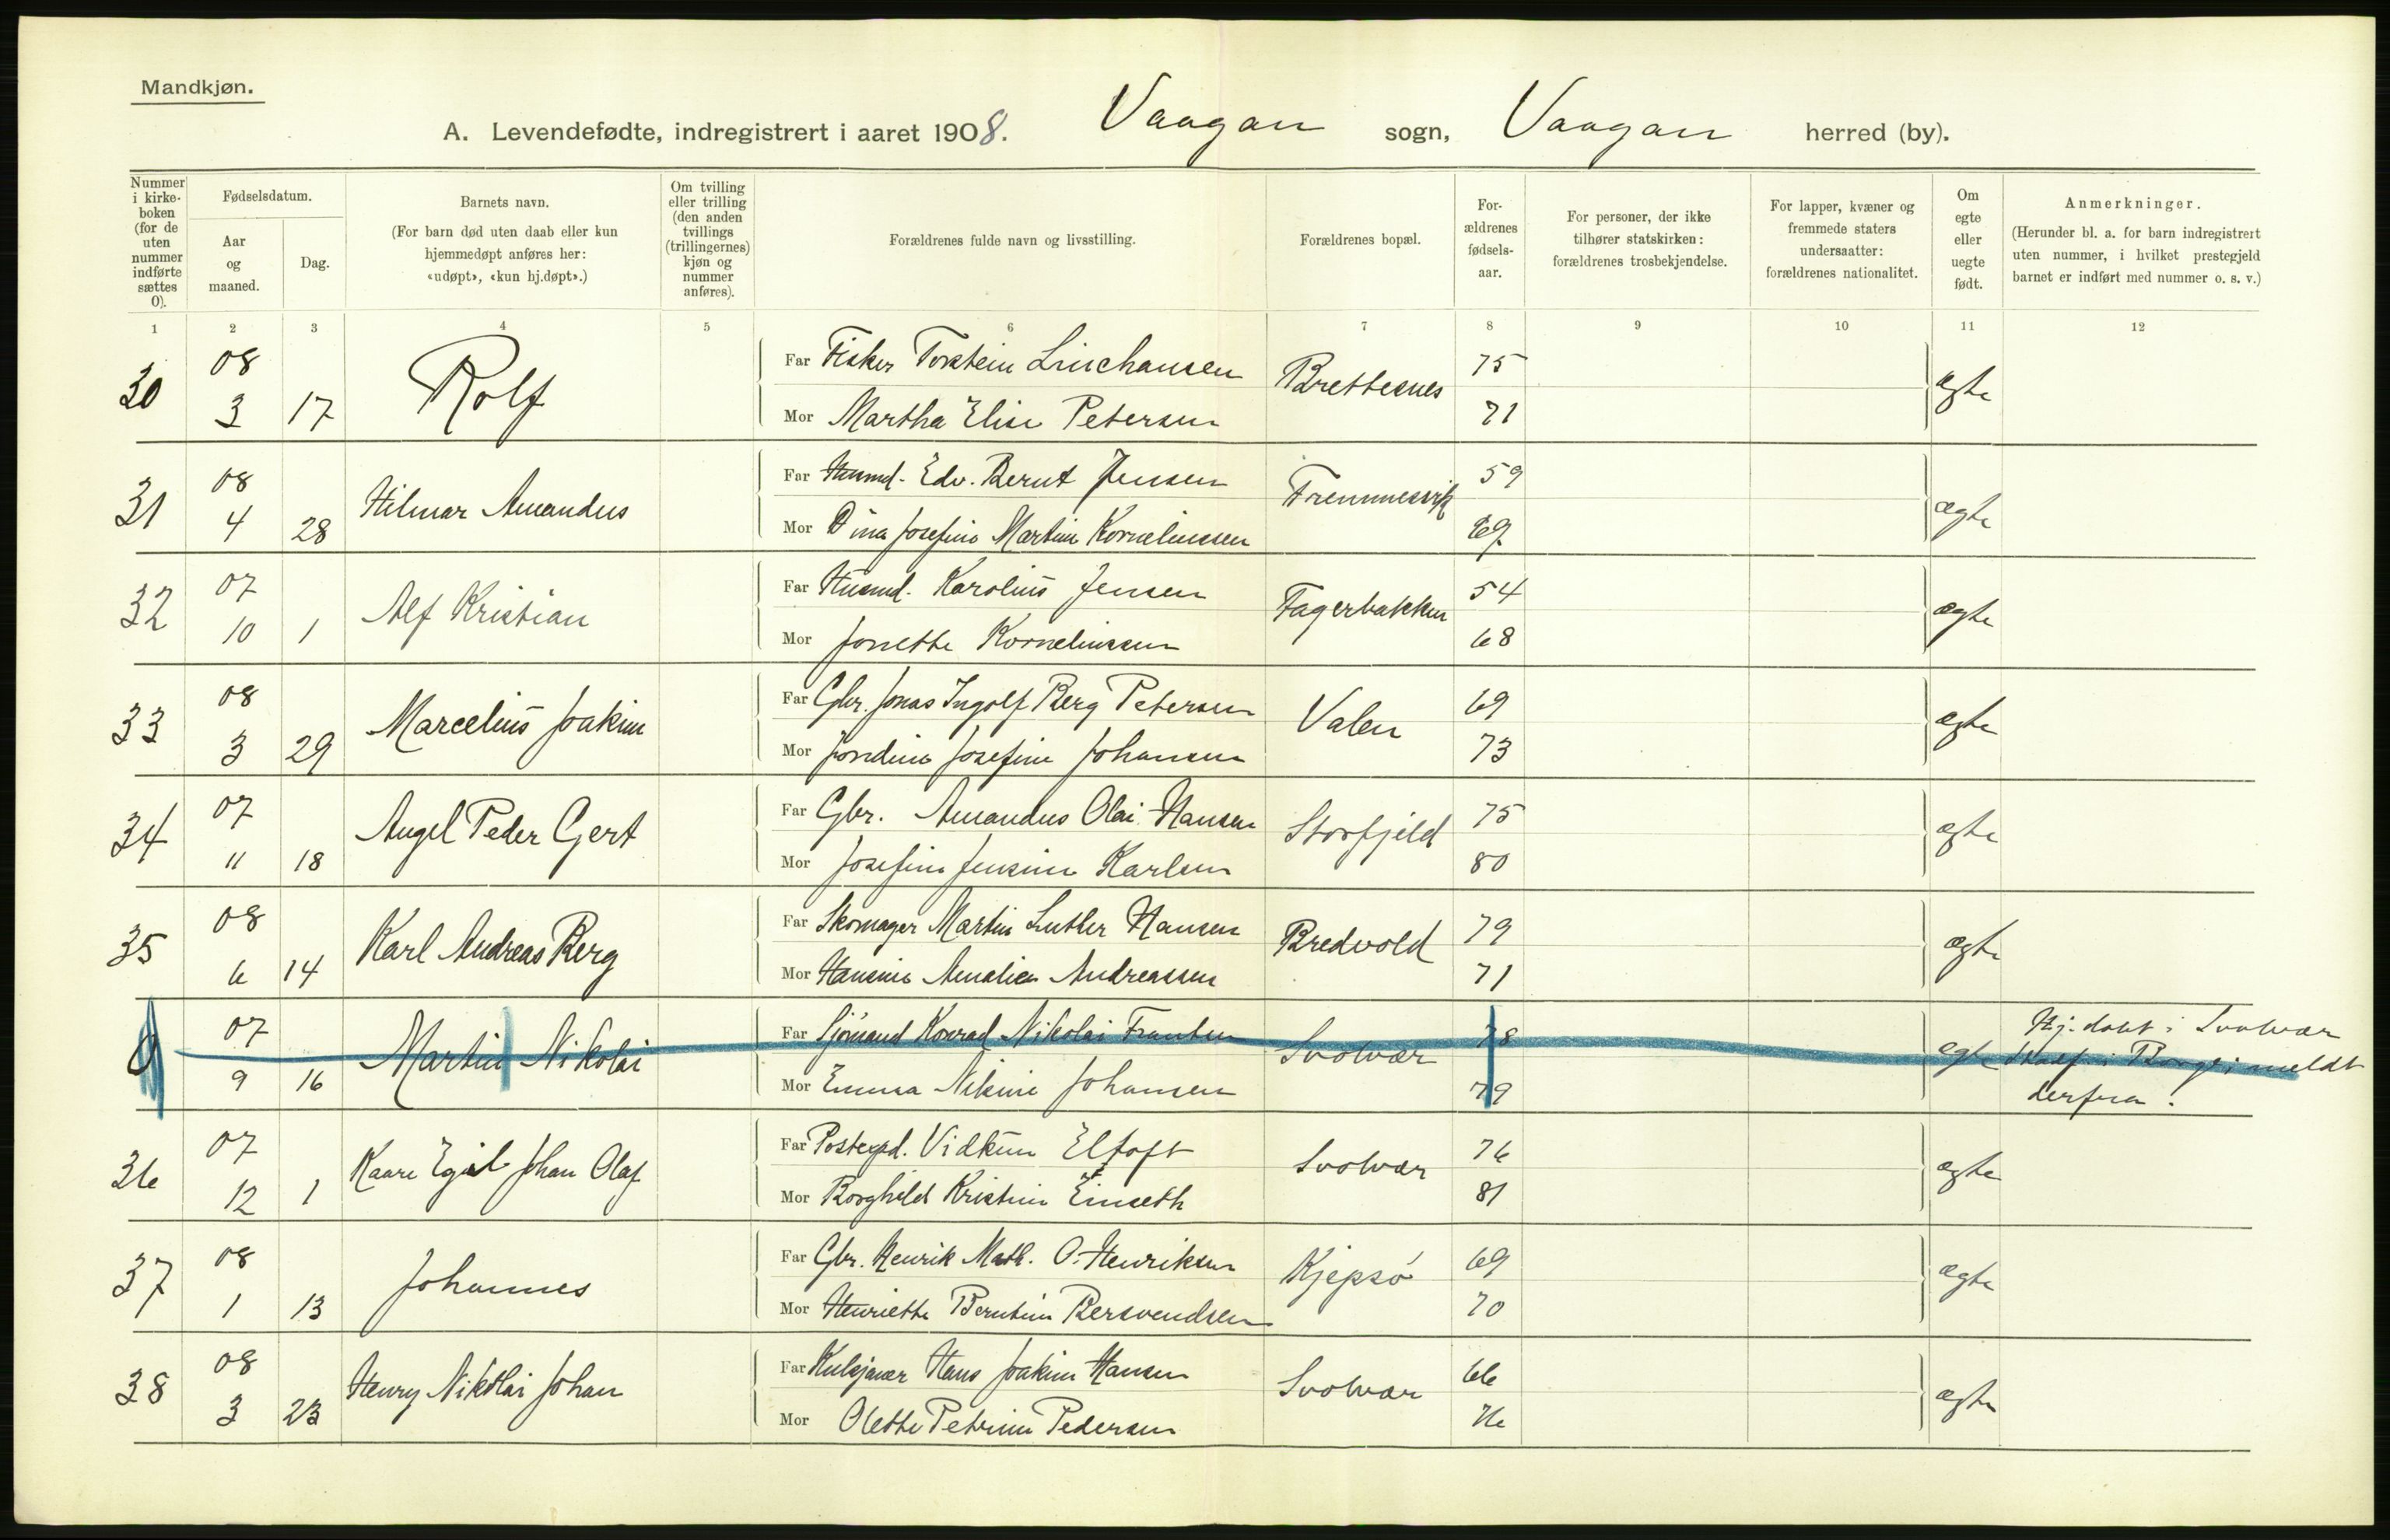 Mandkjøn.
A. Levendefødte, indregistrert i aaret 1908. Vaagan sogn, Vaagan herred (by).
Nummer i kirke- boken (for de uten nummer indførte sættes 0).
Fødselsdatum.
Aar og maaned.
Dag.
Barnets navn.
(For barn død uten daab eller kun hjemmedøpt anføres her: «udøpt», «kun hj.døpt».)
Om tvilling eller trilling (den anden tvillings (trillingernes) kjøn og nummer anføres).
Forældrenes fulde navn og livsstilling.
Forældrenes bopæl.
For- ældrenes fødsels- aar.
For personer, der ikke tilhører statskirken: forældrenes trosbekjendelse.
For lapper, kvæner og fremmede staters undersaatter: forældrenes nationalitet.
Om egte eller uegte født.
Anmerkninger.
(Herunder bl. a. for barn indregistrert uten nummer, i hvilket prestegjeld barnet er indført med nummer o. s. v.)
1 2 3 4 5 6 7 8 9 10 11 12
30 08 3 17 Rolf Far Fisker Torstein Linehansen Brettesnes 75 ægte
Mor Martha Elise Petersen 71
31 08 4 28 Hilmar Amandus Far Husmd. Edv. Bernt Jensen 59 ægte
Mor Dina Josefine Martine Korneliussen 69
32 07 10 1 Alf Kristian Far Husmd. Karolius Jensen Fagerbakken 54 ægte
Mor Jonette Korneliussen 68
33 08 3 29 Marcelius Joakim Far Gbr. Jonas Ingolf Berg Petersen Valen 69 ægte
Mor Jondine Josefine Johansen 73
34 07 11 18 Angel Peder Gert Far Gbr. Amandus Olai Hansen Storfjeld 75 ægte
Mor Josefine Jensine Karlsen 80
35 08 6 14 Karl Andreas Berg Far Skomager Martin Luther Hansen Bredvold 79 ægte
Mor Hansine Amalie Andreassen 71
0 07 9 16 Martin Nikolai Far Sjömand Konrad Nikolai Frantsen Svolvær 78 egte Hj. døbt i Svolvær
Mor Emma Nikine Johansen 79 i Borge; meldt
derfra.
36 07 12 1 Kaare Egil Johan Olaf Far Postexpd. Vidkun Eltoft Svolvær 76 ægte
Mor Borghild Kristine Einseth 81
37 08 1 13 Johannes Far Gbr. Henrik Math. O. Henriksen Kjepsö 69 ægte
Mor Henriette Berntine Bersvendsen 70
38 08 3 23 Henry Nikolai Johan Far Hans Joakim Hansen Svolvær 66 ægte
Mor Olette Petrine Pedersen 76